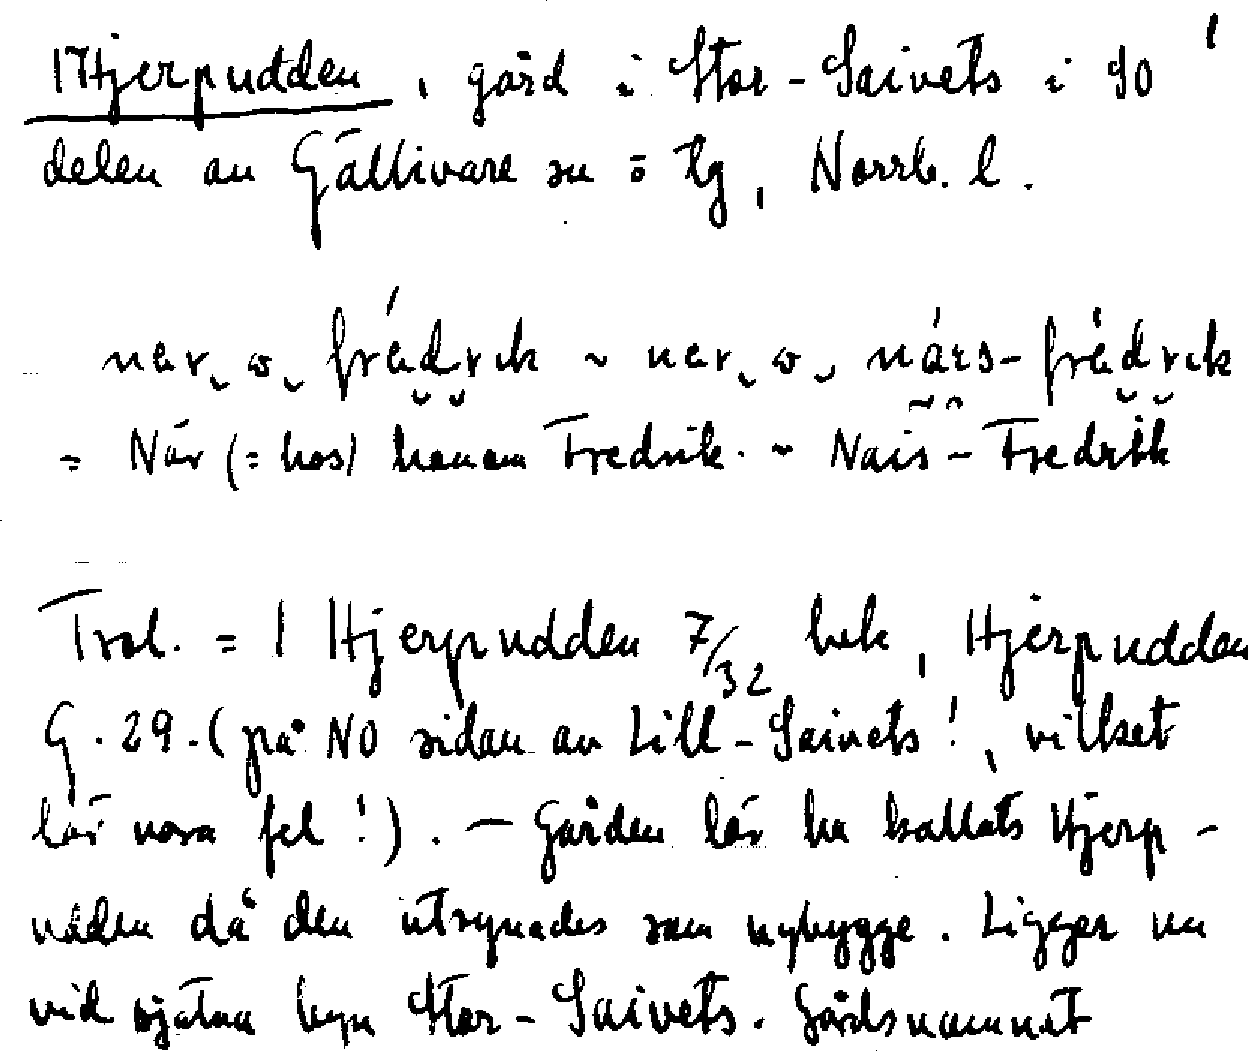 Hjerpudden, gård i Stor-Saivets i SO
delen av Gällivare sn o tg, Norrb. l.
= När (= hos) honom Fredrik. ~ Nars-Fredrik
Trol. = 1 Hjerpudden 7/32 hek, Hjerpudden
G. 29. (på NO sidan av Lill-Saivets!, vilket
lär vara fel!). — Gården lär ha kallats Hjerp-
udden då den utsynades som nybygge. Ligger nu
vid själva byn Stor-Saivets. Gårdsnamnet